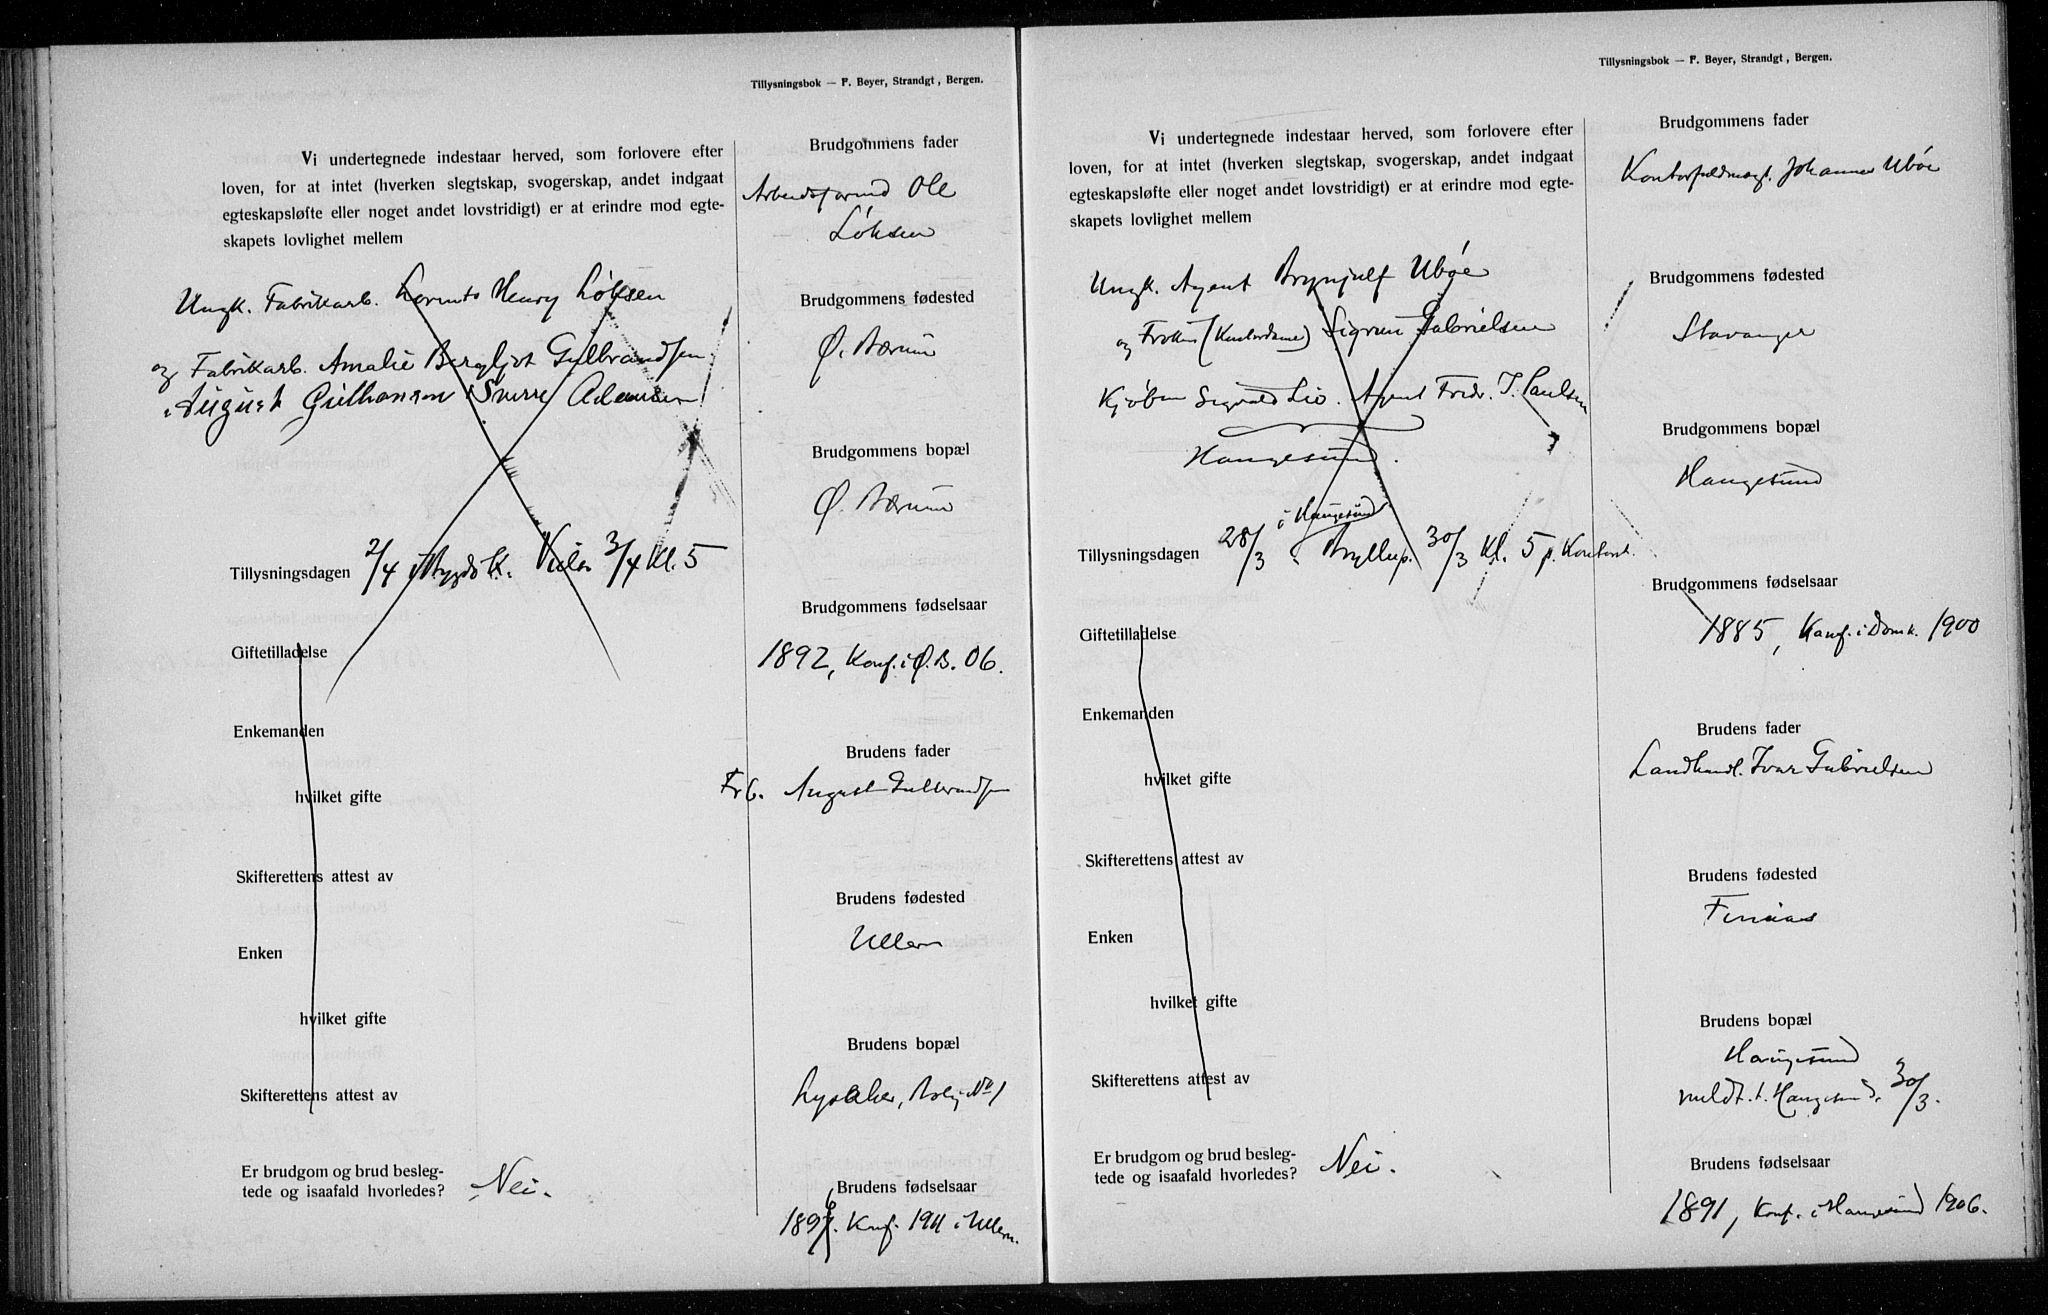 Tillysningsbok — F. Beyer, Strandgt, Bergen.
Vi undertegnede indestaar herved, som forlovere efter
loven, for at intet (hverken slegtskap, svogerskap, andet indgaat
egteskapsløfte eller noget andet lovstridigt) er at erindre mod egte-
skapets lovlighet mellem
Ungk. Fabrikarb. Lorents Henry Löksen
og Fabrikarb. Amalie Bergljot Gulbrandsen
August Gulbransen Sverre
Tillysningsdagen 2/4 i 3/4 Kl. 5
Giftetilladelse
Enkemanden
hvilket gifte
Skifterettens attest av
Enken
hvilket gifte
Skifterettens attest av
Er brudgom og brud besleg-
tede og isaafald hvorledes? Nei.
Brudgommens fader
Arbeidsformd Ole
Löksen
Brudgommens fødested
Ø. Bærum
Brudgommens bopæl
Ø. Bærum
Brudgommens fødselsaar
1892, Konf. i Ø. B. 06.
Brudens fader
August Gulbrandsen
Brudens fødested
Ullern
Brudens bopæl
Lysaker,
Brudens fødselsaar
1896. Konf. 1911 i Ullern.
Tillysningsbok — F. Beyer, Strandgt, Bergen.
Vi undertegnede indestaar herved, som forlovere efter
loven, for at intet (hverken slegtskap, svogerskap, andet indgaat
egteskapsløfte eller noget andet lovstridigt) er at erindre mod egte-
skapets lovlighet mellem
Ungk. Agent Brynjulf Ubøe
og Frøken (Kontordame) Sigrun Gabrielsen
Kjøbm Sigvald Lie. Agent Fredr. J. Paulsen
Haugesund.
i Haugesund
Tillysningsdagen 28/3 Bryllup. 30/3 Kl. 5 p. Kontoret.
Giftetilladelse
Enkemanden
hvilket gifte
Skifterettens attest av
Enken
hvilket gifte
Skifterettens attest av
Er brudgom og brud besleg-
tede og isaafald hvorledes? Nei.
Brudgommens fader
Kontorfuldmægt. Johannes Ubøe
Brudgommens fødested
Stavanger
Brudgommens bopæl
Haugesund
Brudgommens fødselsaar
1885, Konf. i Domk. 1900
Brudens fader
Landhandl. Ivar Gabrielsen
Brudens fødested
Finnaas
Brudens bopæl
Haugesund
meldt t. Haugesund, 30/3.
Brudens fødselsaar
1891, Konf. i Haugesund 1906.